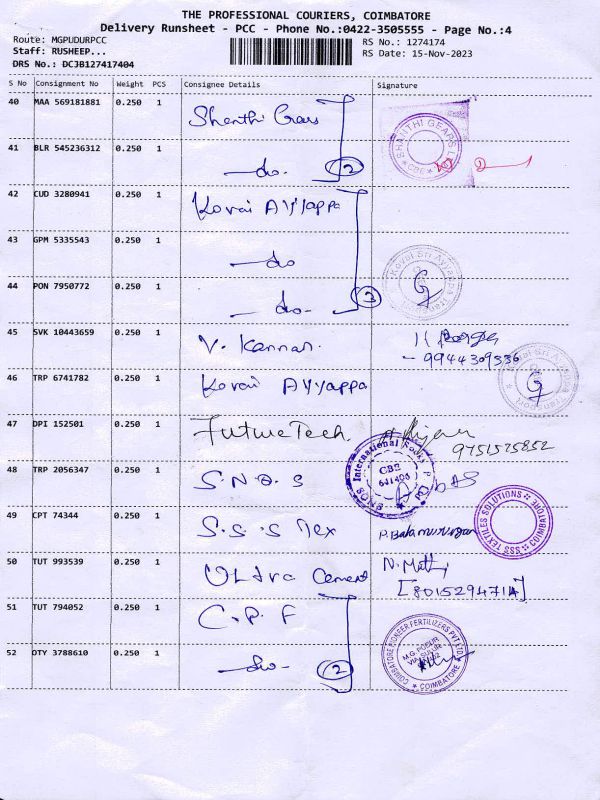 THE PROFESSIONAL COURIERS, COIMBATORE
Delivery Runsheet - PCC - Phone No.:0422-3505555 - Page No.:4
Route: MGPUDURPCC
RS No.: 1274174
Staff: RUSHEEP...
RS Date: 15-Nov-2023
DRS No.: DCJB127417404
S No Consignment No Weight PCS Consignee Details Signature
40 MAA 569181881 0.250 1 Shanthi Gears
SHANTHI GEARS L
CBE
41 BLR 545236312 0.250 1 -do- 2
42 CUD 3280941 0.250 1 Kovai Ayyappa
43 GPM 5335543 0.250 1 -do
Kovai Sri Ayyappa
44 PON 7950772 0.250 1 -do- 3
45 SVK 10443659 0.250 1 V. Kannan.
- 9944309336
Kovai Sri Ayyappa
46 TRP 6741782 0.250 1 Kovai Ayyappa
47 DPI 152501 0.250 1 FutureTech.
9751575852
48 TRP 2056347 0.250 1 S.N.D.S
SNDS International Socks P
CBE
641405
49 CPT 74344 0.250 1 S.S.S Tex P. Balamurugan
SSS TEXTILES SOLUTIONS COIMBATORE
50 TUT 993539 0.250 1 Ultra Cement N. Muthu
[8015294714]
51 TUT 794052 0.250 1 C.P.F
52 OTY 3788610 0.250 1 -do- 2
COIMBATORE PIONEER FERTILIZERS PVT LTD.
M.G. PUDUR
VIA SULUR
COIMBATORE